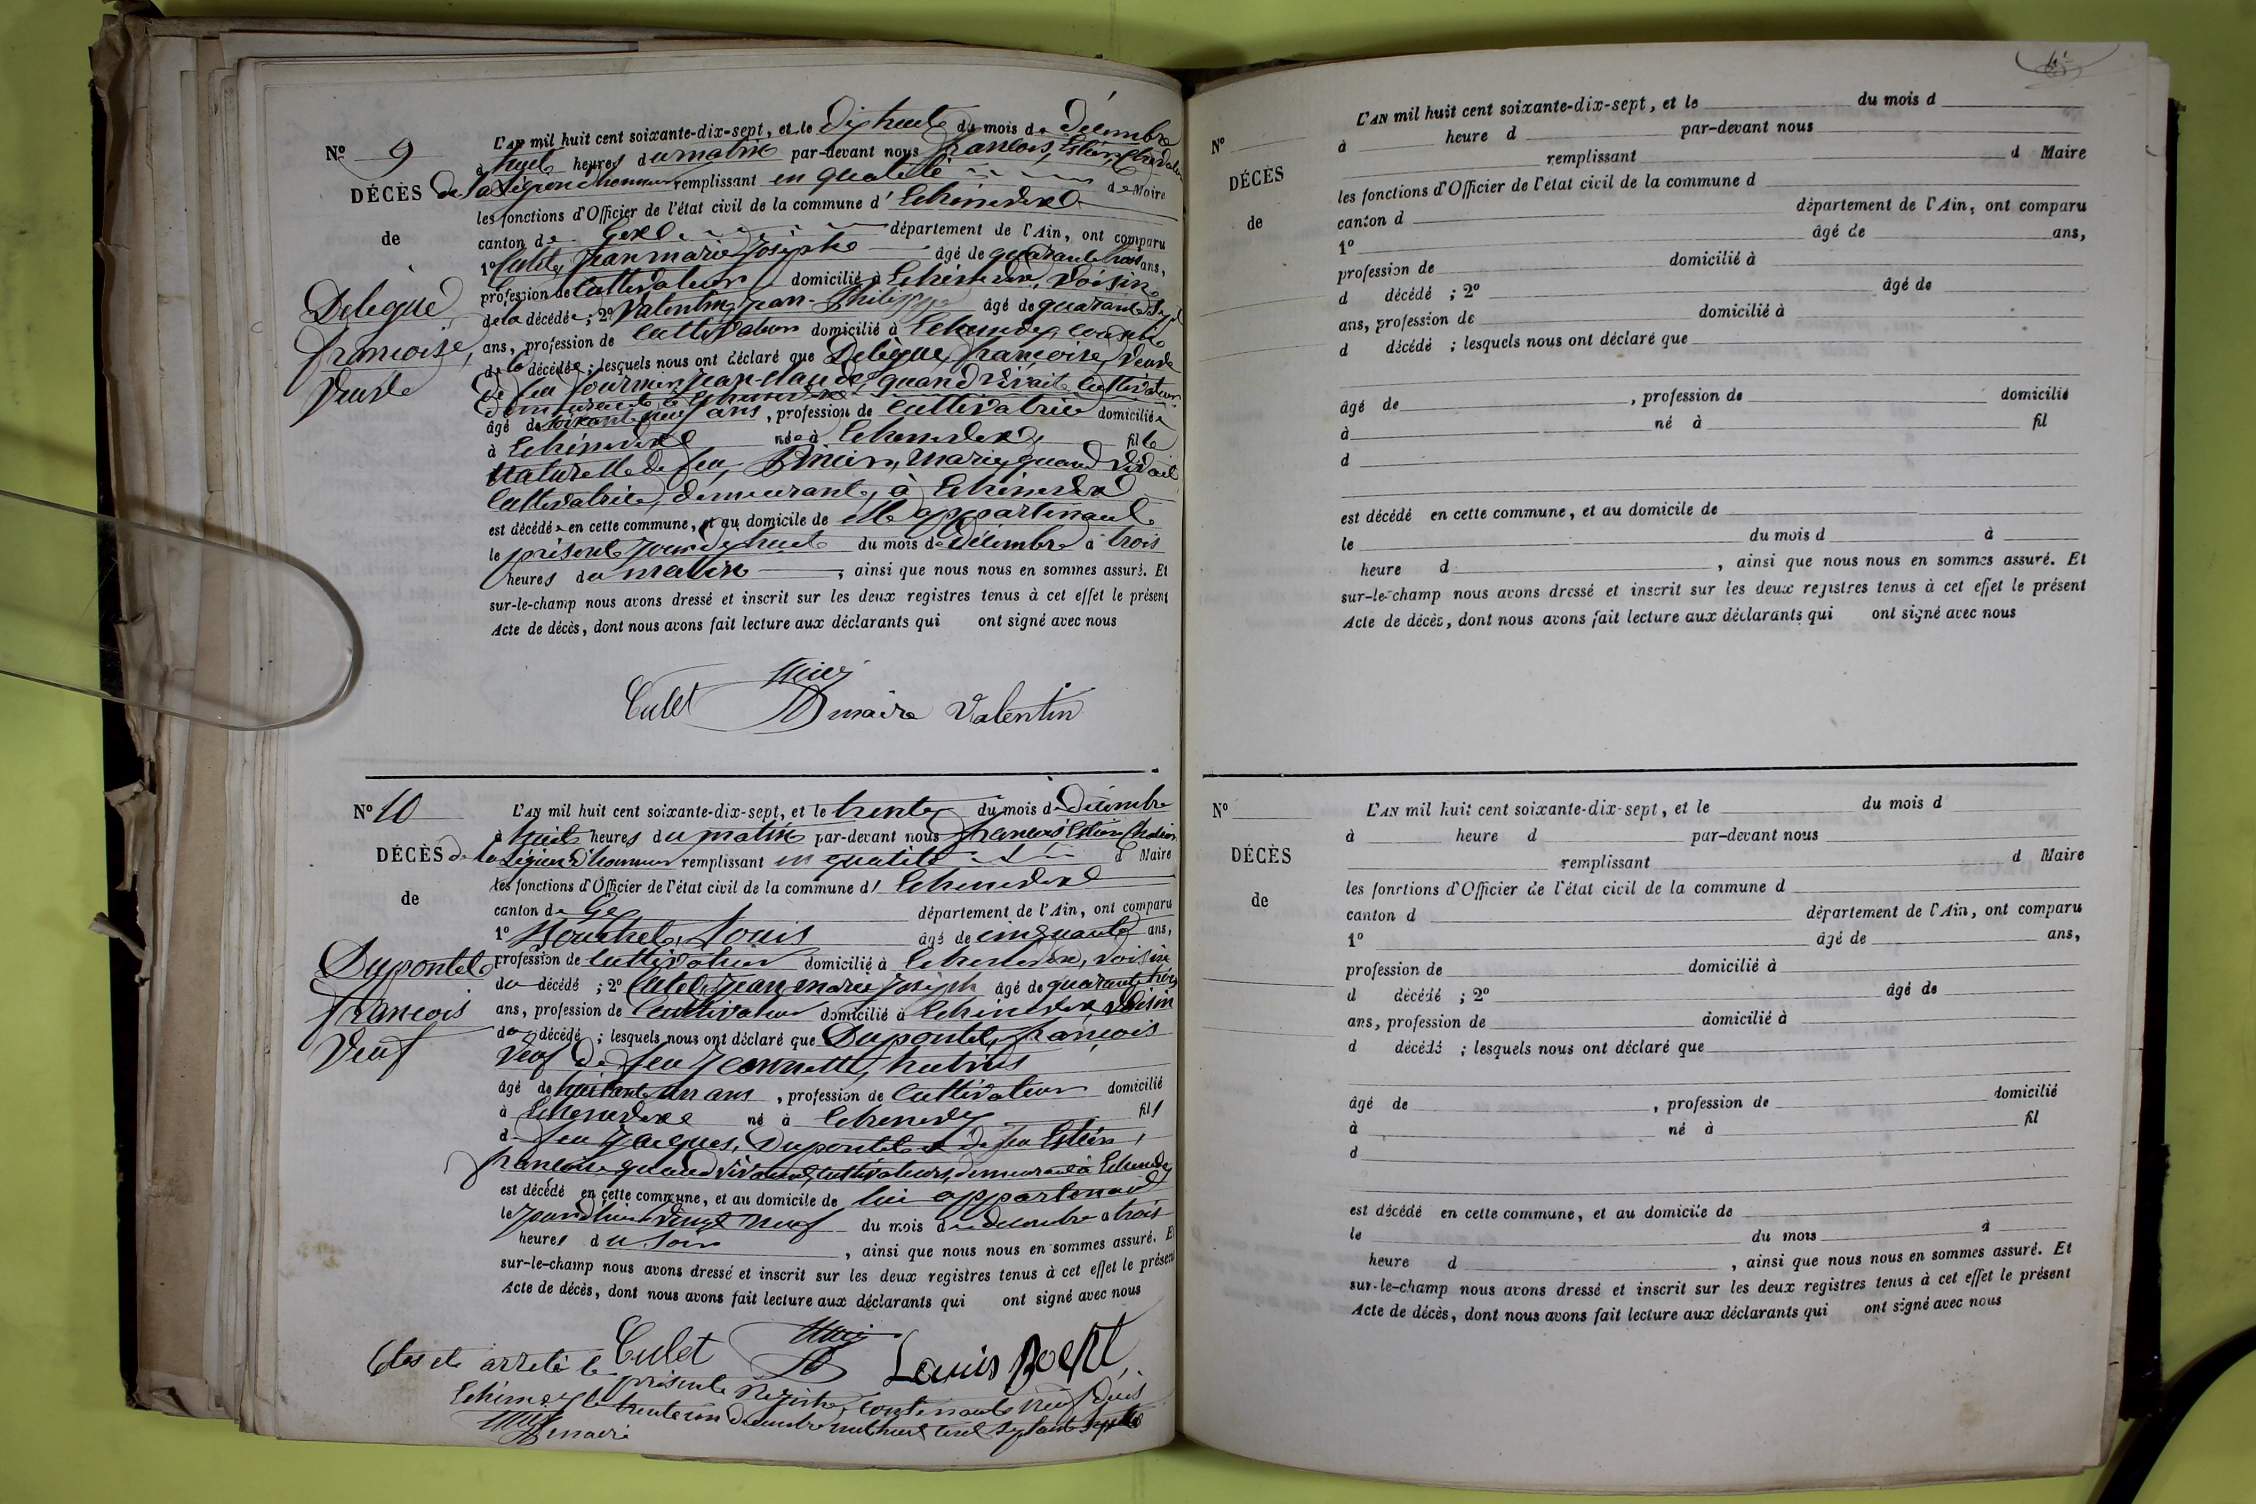 Nº 9
DÉCÈS
de
Delègue
françoise,
Veuve
L'AN mil huit cent soixante-dix-sept, et le dix huit du mois de Décembre
à huit heures du matin par-devant nous françois, Estien, Chevalier
de la Légion d'honneur remplissant en qualité de Maire
les fonctions d'Officier de l'état civil de la commune d' Echenevex
canton de Gex département de l'Ain, ont comparu
1º Culet, Jean marie Joseph âgé de quarante trois ans,
profession de Cultivateur domicilié à Echenevex, Voisin
de la décédée ; 2º Valentin, jean-Philippe âgé de quarante sept
ans, profession de Cultivateur domicilié à Echenevex, cousin
de la décédée ; lesquels nous ont déclaré que Delègue, françoise, Veuve
de feu fournier, jean-claude, quand vivait Cultivateur
demeurant à Echenevex
âgé de soixante neuf ans, profession de Cultivatrice domiciliée
à Echenevex née à Echenevex, fille
Naturelle de feu, Marie, quand vivait
Cultivatrice, demeurant, à Echenevex
est décédée en cette commune, et au domicile de elle appartenant
le présent jour dix huit du mois de Décembre à trois
heures du matin, ainsi que nous nous en sommes assuré. Et
sur-le-champ nous avons dressé et inscrit sur les deux registres tenus à cet effet le présent
Acte de décès, dont nous avons fait lecture aux déclarants qui ont signé avec nous
Culet maire Valentin
Nº 10
DÉCÈS
de
Dupontet
françois
Veuf
L'AN mil huit cent soixante-dix-sept, et le trente, du mois de Décembre
à huit heures du matin par-devant nous françois Estien Chevalier
de la Légion d'honneur remplissant en qualité d Maire
les fonctions d'Officier de l'état civil de la commune d' Echenevex
canton de Gex département de l'Ain, ont comparu
1º Louis âgé de cinquante ans,
profession de Cultivateur domicilié à Echenevex, voisin
du décédé ; 2º Culet, jean marie joseph âgé de quarante trois
ans, profession de Cultivateur domicilié à Echenevex, Voisin
du décédé ; lesquels nous ont déclaré que Dupontet, françois
Veuf de feu Jeannette
âgé de huitante un ans, profession de Cultivateur domicilié
à Echenevex né à Echenevex fils
de feu Jacques, Dupontet et de feu Estien,
françoise quand vivaient, cultivateurs, demeurant à Echenevex
est décédé en cette commune, et au domicile de lui appartenant
le jour d'hier vingt neuf du mois de décembre à trois
heures du soir, ainsi que nous nous en sommes assuré. Et
sur-le-champ nous avons dressé et inscrit sur les deux registres tenus à cet effet le présent
Acte de décès, dont nous avons fait lecture aux déclarants qui ont signé avec nous
Culet Louis
Clos et arrêté le
présent Registre, contenant neuf Décès
Echenevex le trente un Décembre mil huit cent septante sept
maire
Nº
DÉCÈS
de
L'AN mil huit cent soixante-dix-sept, et le du mois d
à heure d par-devant nous
remplissant d Maire
les fonctions d'Officier de l'état civil de la commune d
canton d département de l'Ain, ont comparu
1º âgé de ans,
profession de domicilié à
d décédé ; 2º âgé de
ans, profession de domicilié à
d décédé ; lesquels nous ont déclaré que
âgé de , profession de domicilié
à né à fil
d
est décédé en cette commune, et au domicile de
le du mois d à
heure d , ainsi que nous nous en sommes assuré. Et
sur-le-champ nous avons dressé et inscrit sur les deux registres tenus à cet effet le présent
Acte de décès, dont nous avons fait lecture aux déclarants qui ont signé avec nous
Nº
DÉCÈS
de
L'AN mil huit cent soixante-dix-sept, et le du mois d
à heure d par-devant nous
remplissant d Maire
les fonctions d'Officier de l'état civil de la commune d
canton d département de l'Ain, ont comparu
1º âgé de ans,
profession de domicilié à
d décédé ; 2º âgé de
ans, profession de domicilié à
d décédé ; lesquels nous ont déclaré que
âgé de , profession de domicilié
à né à fil
d
est décédé en cette commune, et au domicile de
le du mois à
heure d , ainsi que nous nous en sommes assuré. Et
sur-le-champ nous avons dressé et inscrit sur les deux registres tenus à cet effet le présent
Acte de décès, dont nous avons fait lecture aux déclarants qui ont signé avec nous